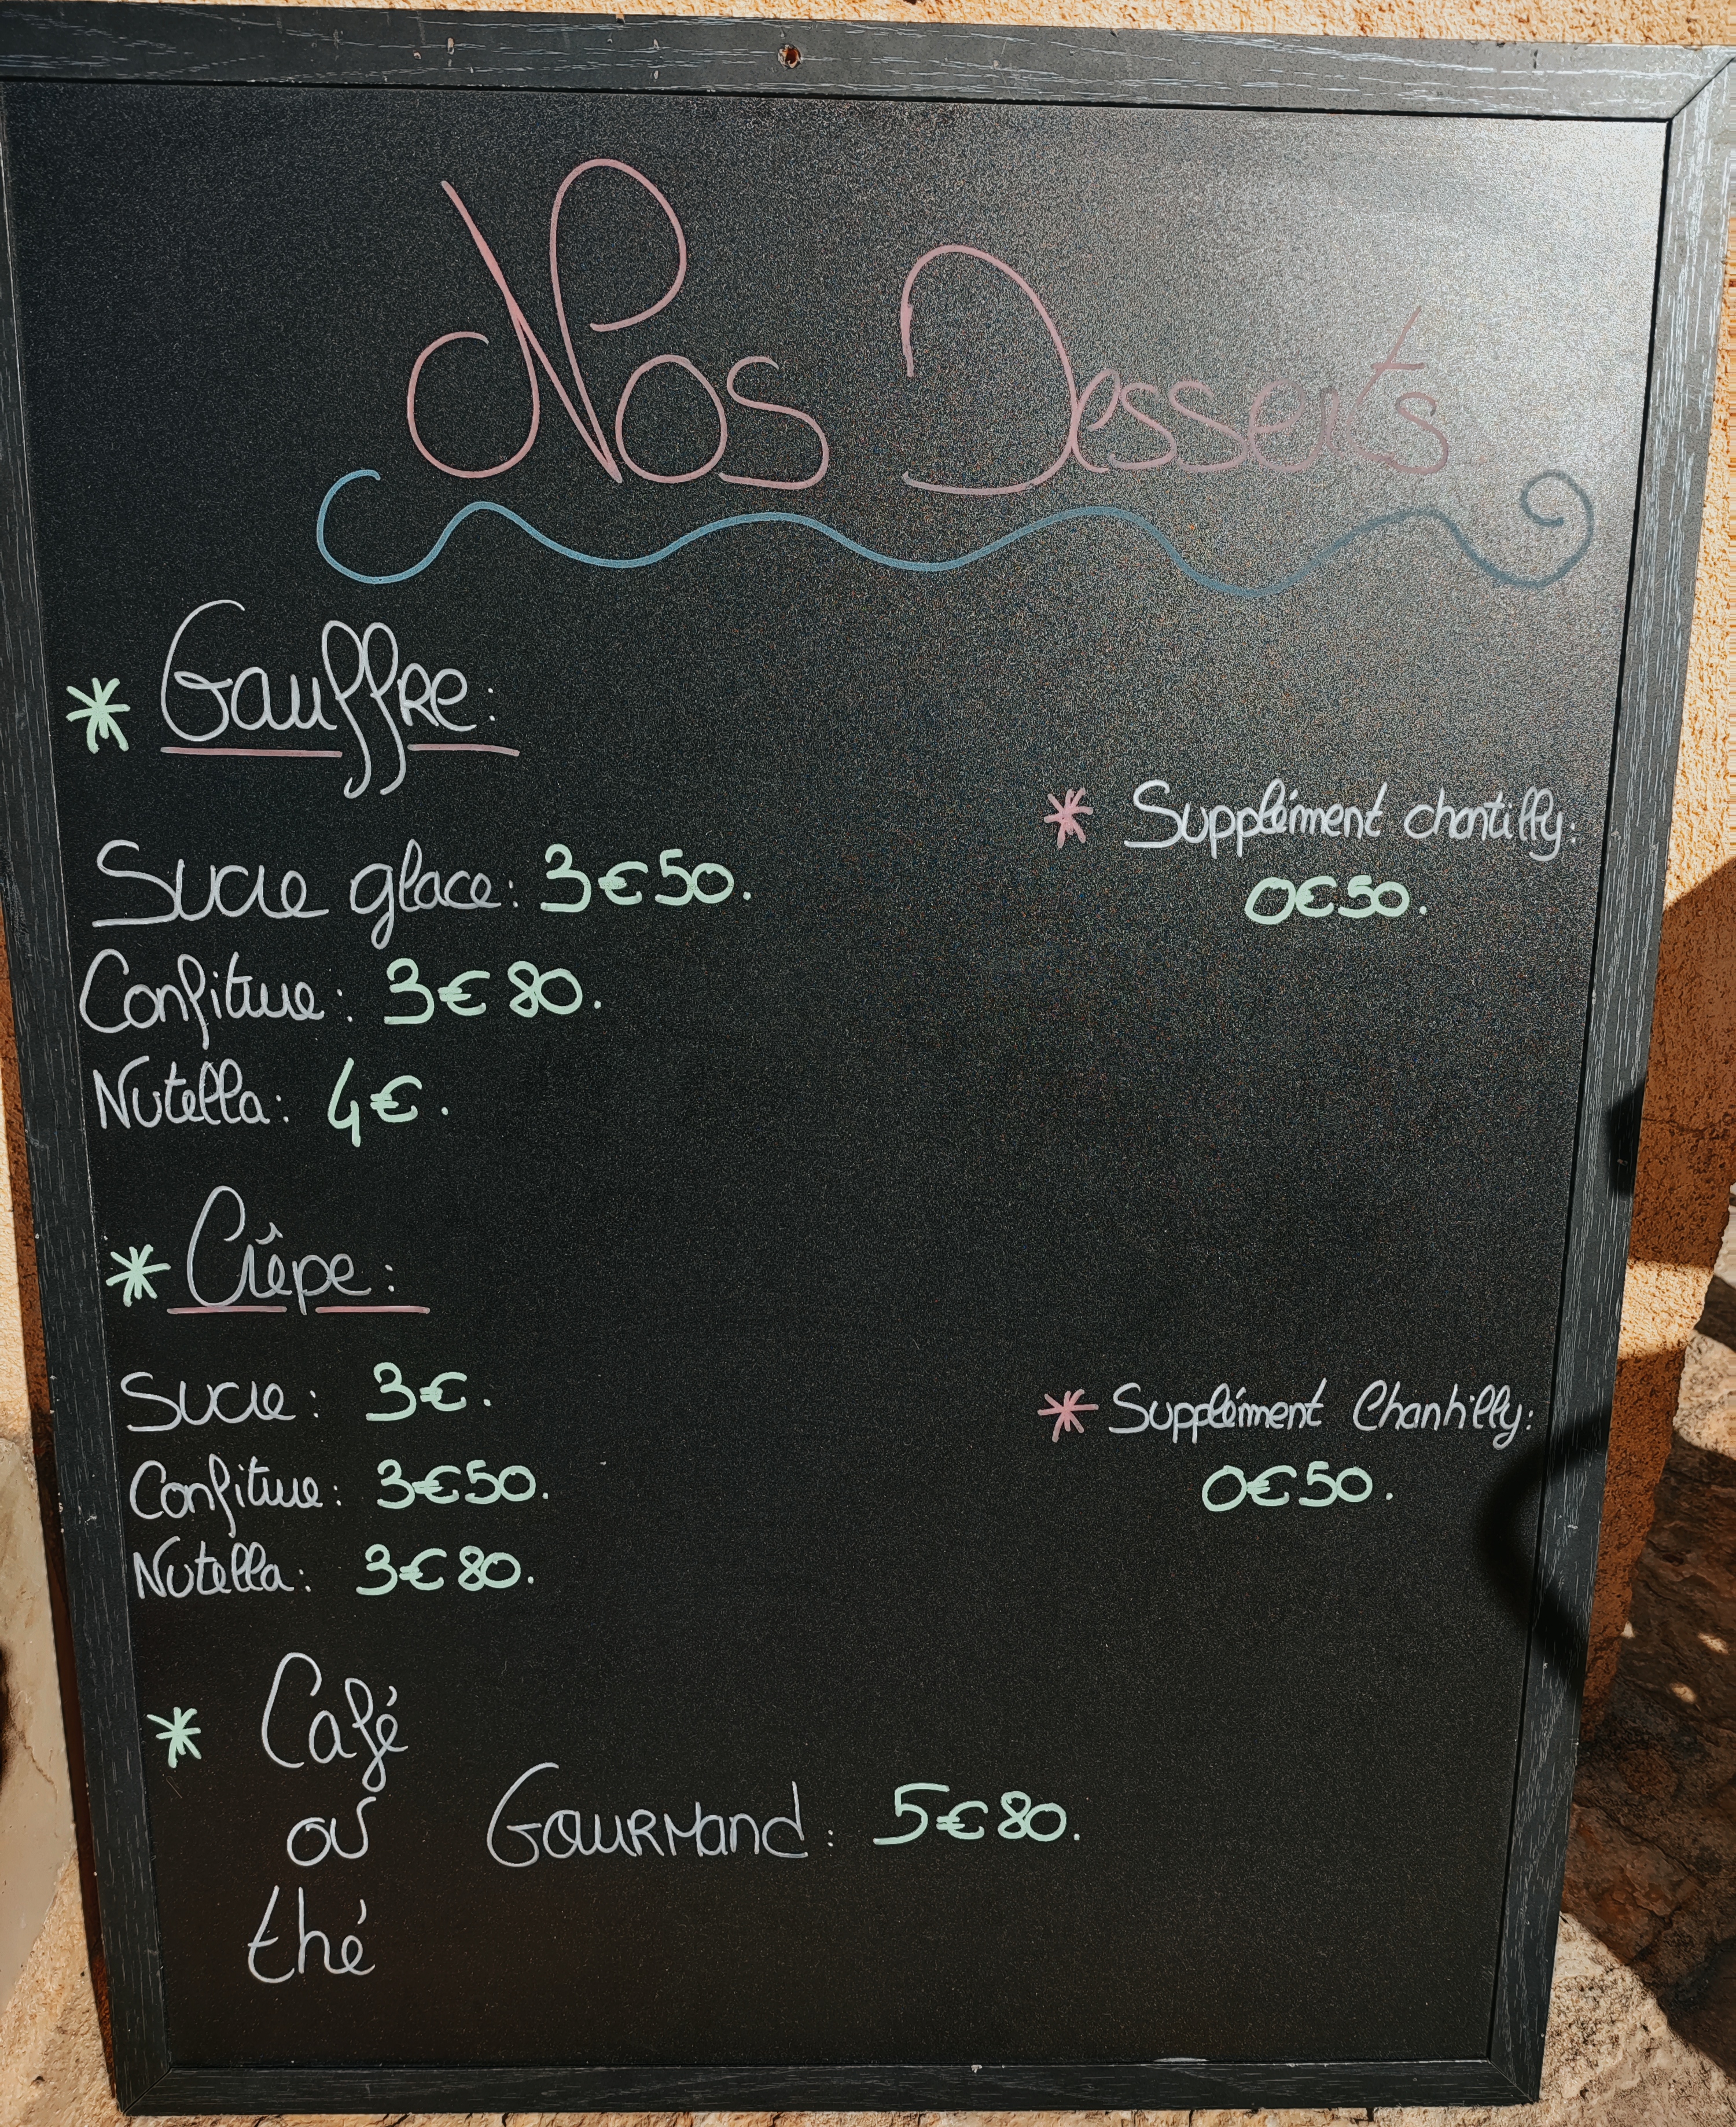 Nos Desserts
* Gauffre:
* Supplément chantilly:
0€50.
Sucre glace: 3€50.
Confiture: 3€80.
Nutella: 4€.
* Crêpe:
Sucre: 3€.
* Supplément Chantilly:
0€50.
Confiture: 3€50.
Nutella: 3€80.
* Café
ou Gourmand: 5€80.
thé